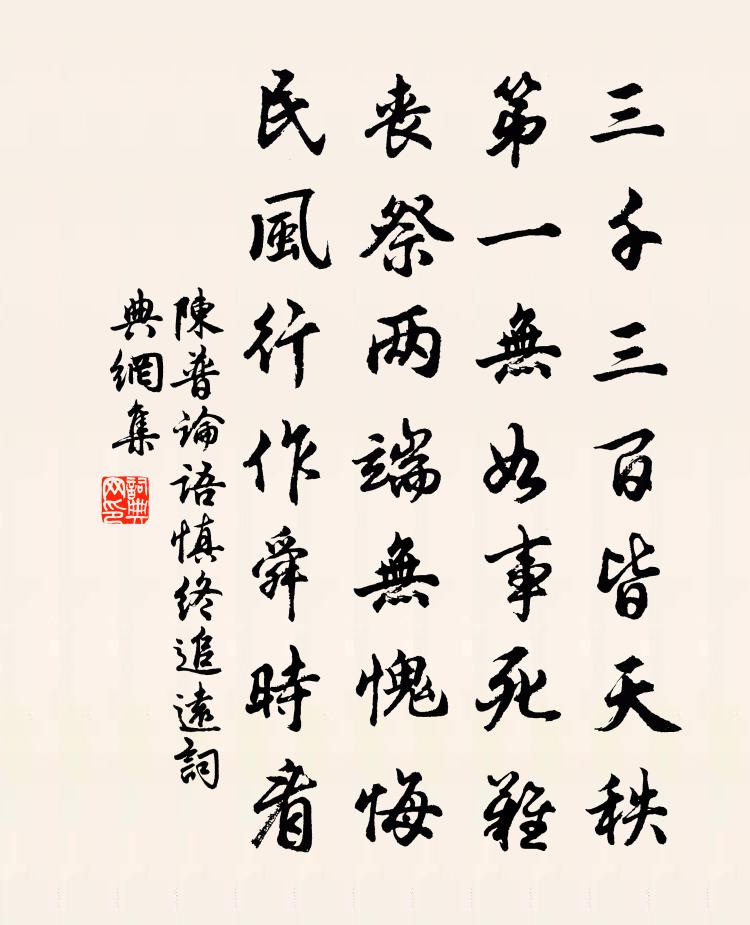 三千三百皆天秩
第一無如事死難
喪祭两端無愧悔
民風行作舜時看
陳普論語慎终追遠詞
典網集
詞典
网印